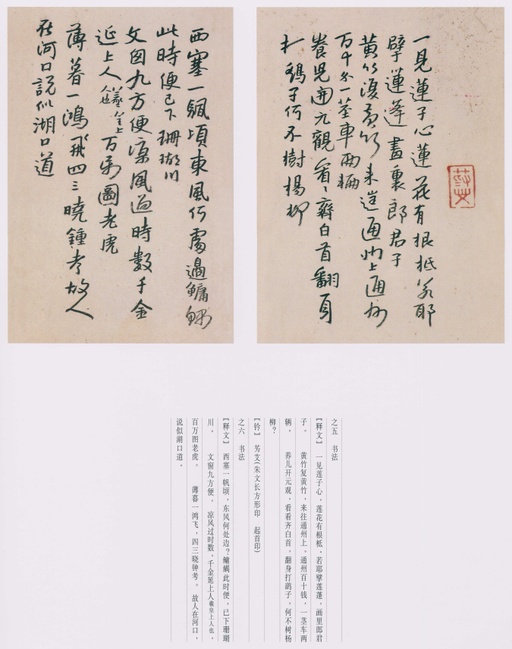 一見蓮子心蓮花有根柢若耶
擘蓮蓬畫裏郎君子
黄竹復黄竹来逞通州上通州
百十钱一茎車兩輛
養児開元觀看〻齊白首翻身
打鴿子何不樹楊柳
西塞一颿頃東風何處邊鱅
此時便已下珊瑚川
文囱九方便凉風過時數千金
延上人 上人也 百万圖老虎
薄暮一鴻飛四三曉鍾考故人
在河口説似湖口道
之五 书法
【释文】 一见莲子心，莲花有根柢，若耶擘莲蓬，画里郎君
子。 黄竹复黄竹，来往通州上，通州百十钱，一茎车两
辆。 养儿开元观，看看齐白首，翻身打鸽子，何不树杨
柳？
【钤】 芴艾(朱文长方形印 起首印)
之六 书法
【释文】 西塞一帆顷，东风何处边？鳙此时便，已下珊瑚
川。 文窗九方便，凉风过时数，千金延上人上人也，
百万图老虎。 薄暮一鸿飞，四三晓钟考，故人在河口，
说似湖口道。